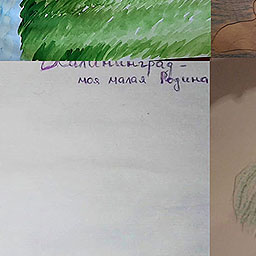 Калининград -
моя малая Родина